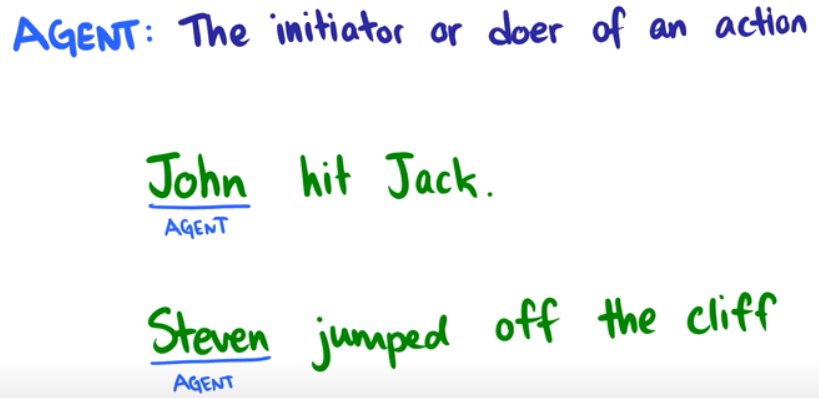 AGENT: The initiator or doer of an action
John hit Jack.
AGENT
Steven jumped off the cliff
AGENT